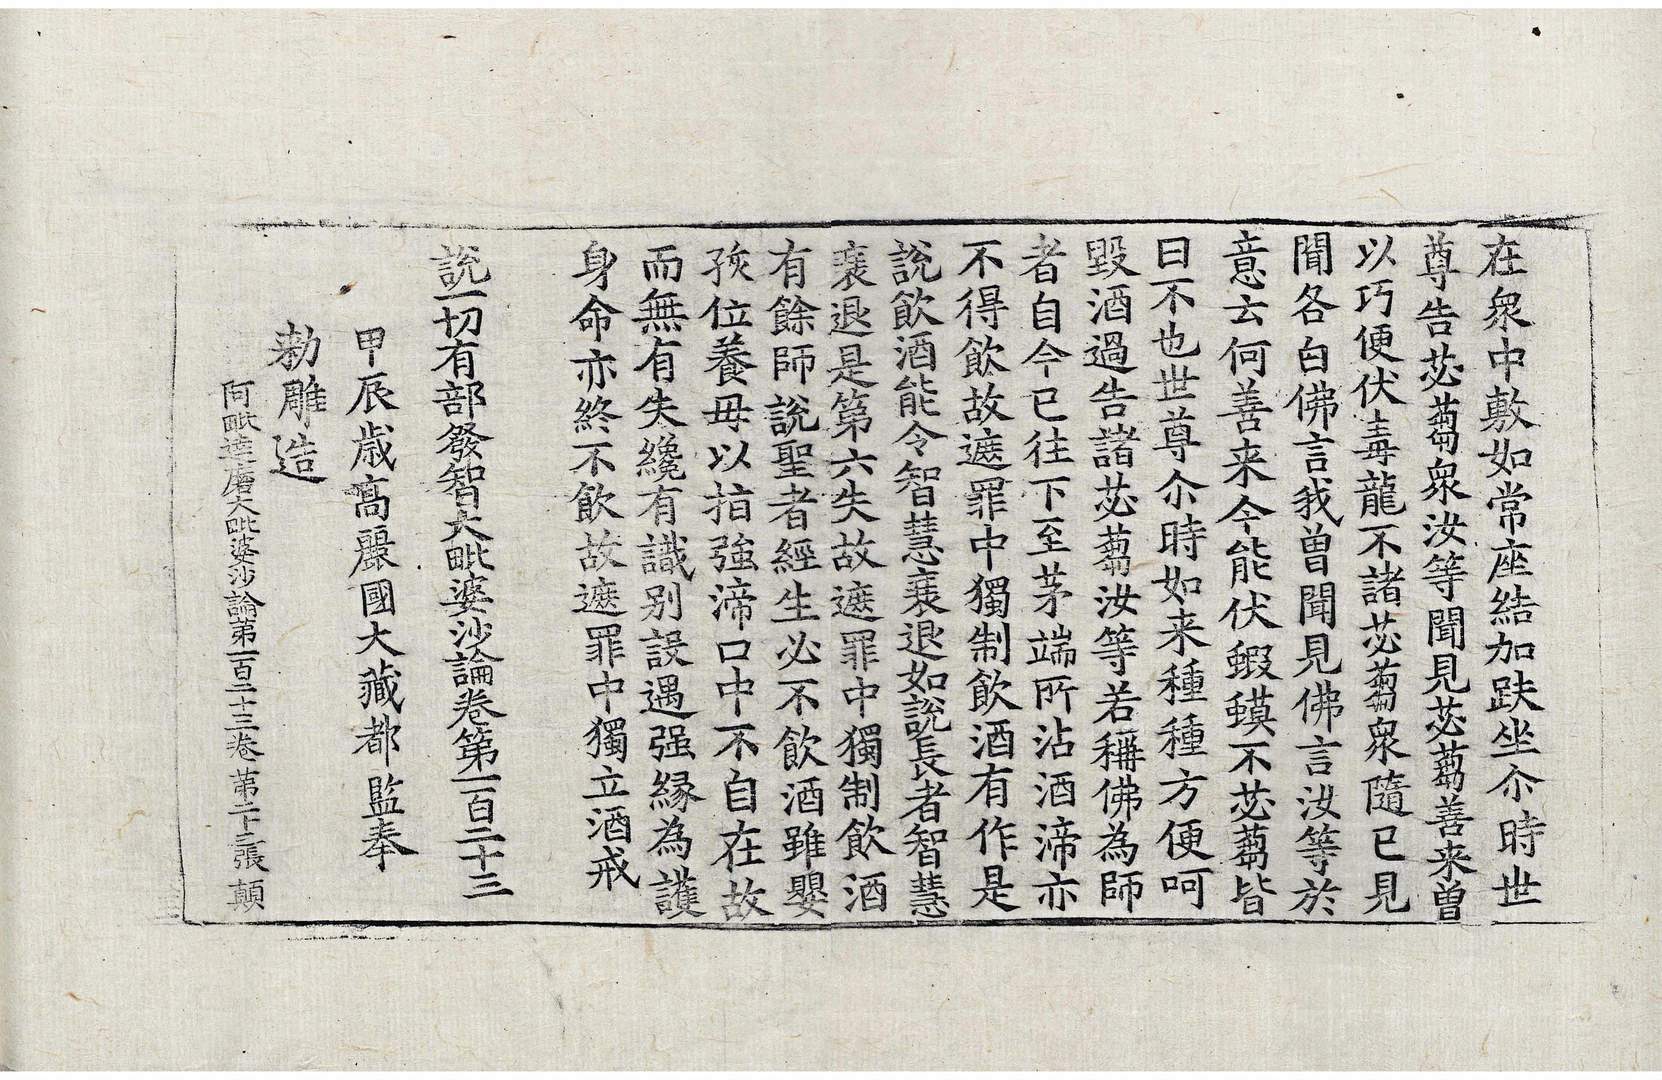 在衆中敷如常座結加趺坐尒時世
尊告苾蒭衆汝等聞見苾蒭善来曽
以巧便伏毒龍不諸苾蒭衆隨已見
聞各白佛言我曽聞見佛言汝等於
意云何善来今能伏蝦蟆不苾蒭皆
曰不也世尊尒時如来種種方便呵
毀酒過告諸苾蒭汝等若稱佛為師
者自今已往下至茅端所沾酒渧亦
不得飲故遮罪中獨制飲酒有作是
說飲酒能令智慧衰退如說長者智慧
衰退是第六失故遮罪中獨制飲酒
有餘師說聖者經生必不飲酒雖嬰
孩位養母以指強渧口中不自在故
而無有失纔有識別設遇强縁為護
身命亦終不飲故遮罪中獨立酒戒
說一切有部發智大毗婆沙論卷第一百二十三
甲辰歲高麗國大藏都監奉
勅雕造
阿毗達磨大毗婆沙論第一百二十三卷 第二十三張 顛